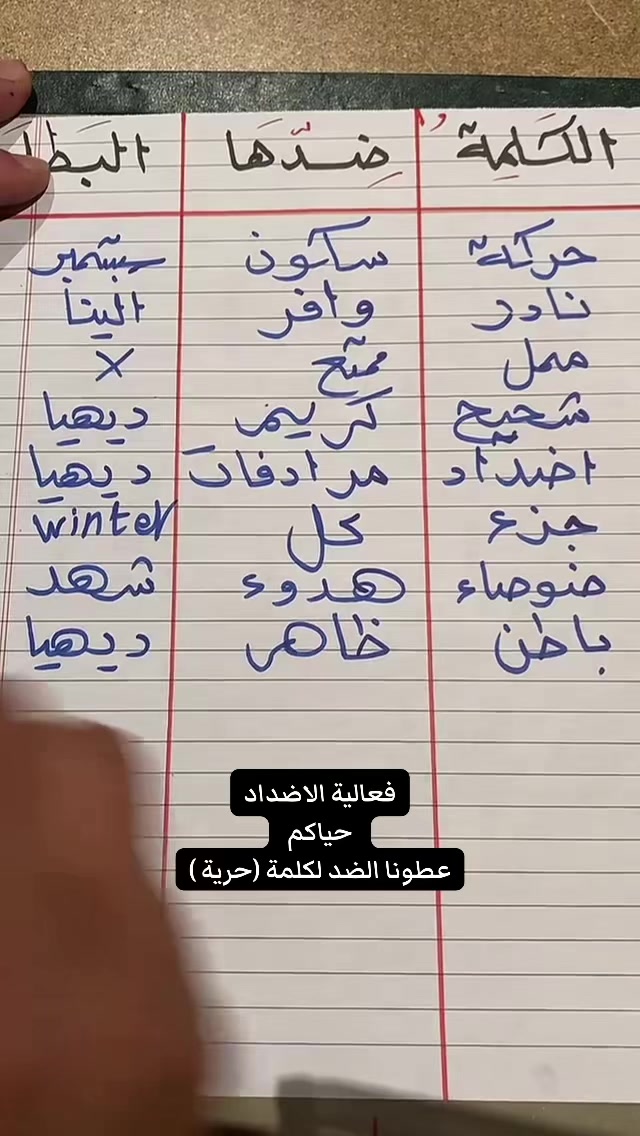 الكَلِمة ضِدّها البَط
حركة سكون سبتمبر
نادر وافر الينا
ممل ممتع X
شحيح كريم ديهيا
اضداد مرادفات ديهيا
جزء كل winter
ضوضاء هدوء شهد
باطن ظاهر ديهيا
فعالية الاضداد
حياكم
عطونا الضد لكلمة (حرية )